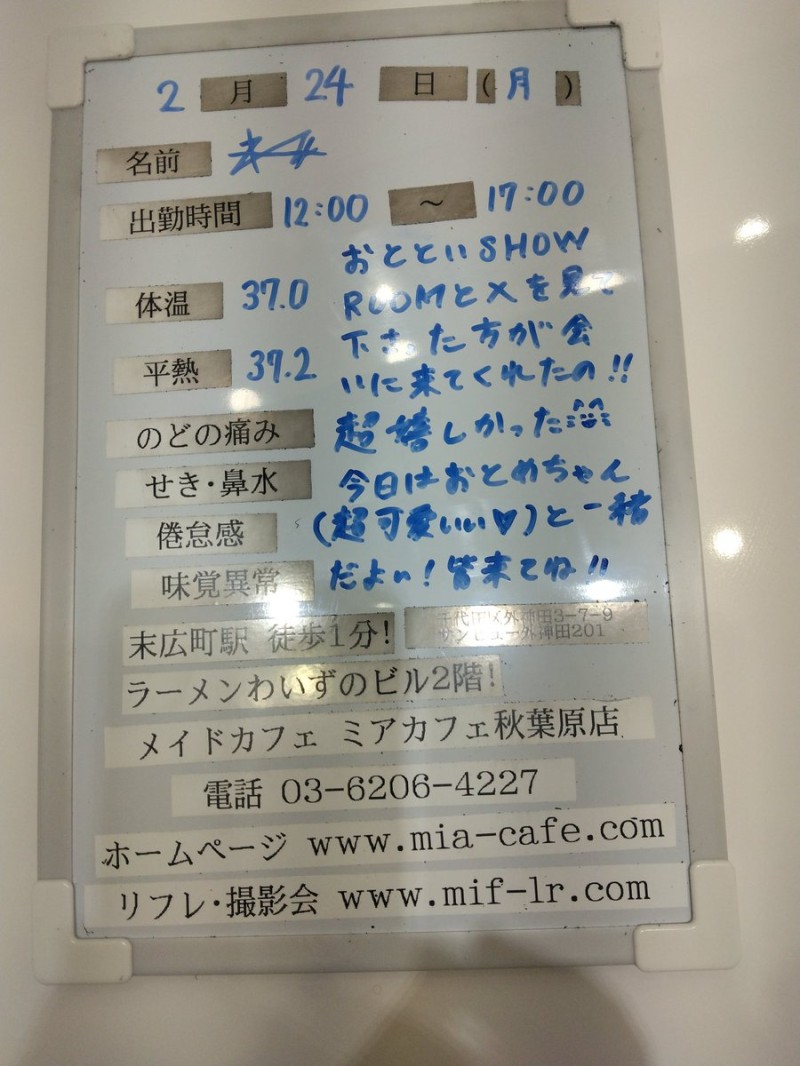 2 月 24 日 (月)
名前
出勤時間 12:00 ～ 17:00
体温 37.0
平熱 37.2
おとといSHOW
ROOMとXを見て
下さった方が会
いに来てくれたの!!
超嬉しかった
今日はおとめちゃん
(超可愛いい♥)と一緒
だよん!皆来てね!!
のどの痛み
せき・鼻水
倦怠感
味覚異常
末広町駅 徒歩1分!
千代田区外神田3-7-9
サンビュー外神田201
ラーメンわいずのビル2階!
メイドカフェ ミアカフェ秋葉原店
電話 03-6206-4227
ホームページ www.mia-cafe.com
リフレ・撮影会 www.mif-lr.com